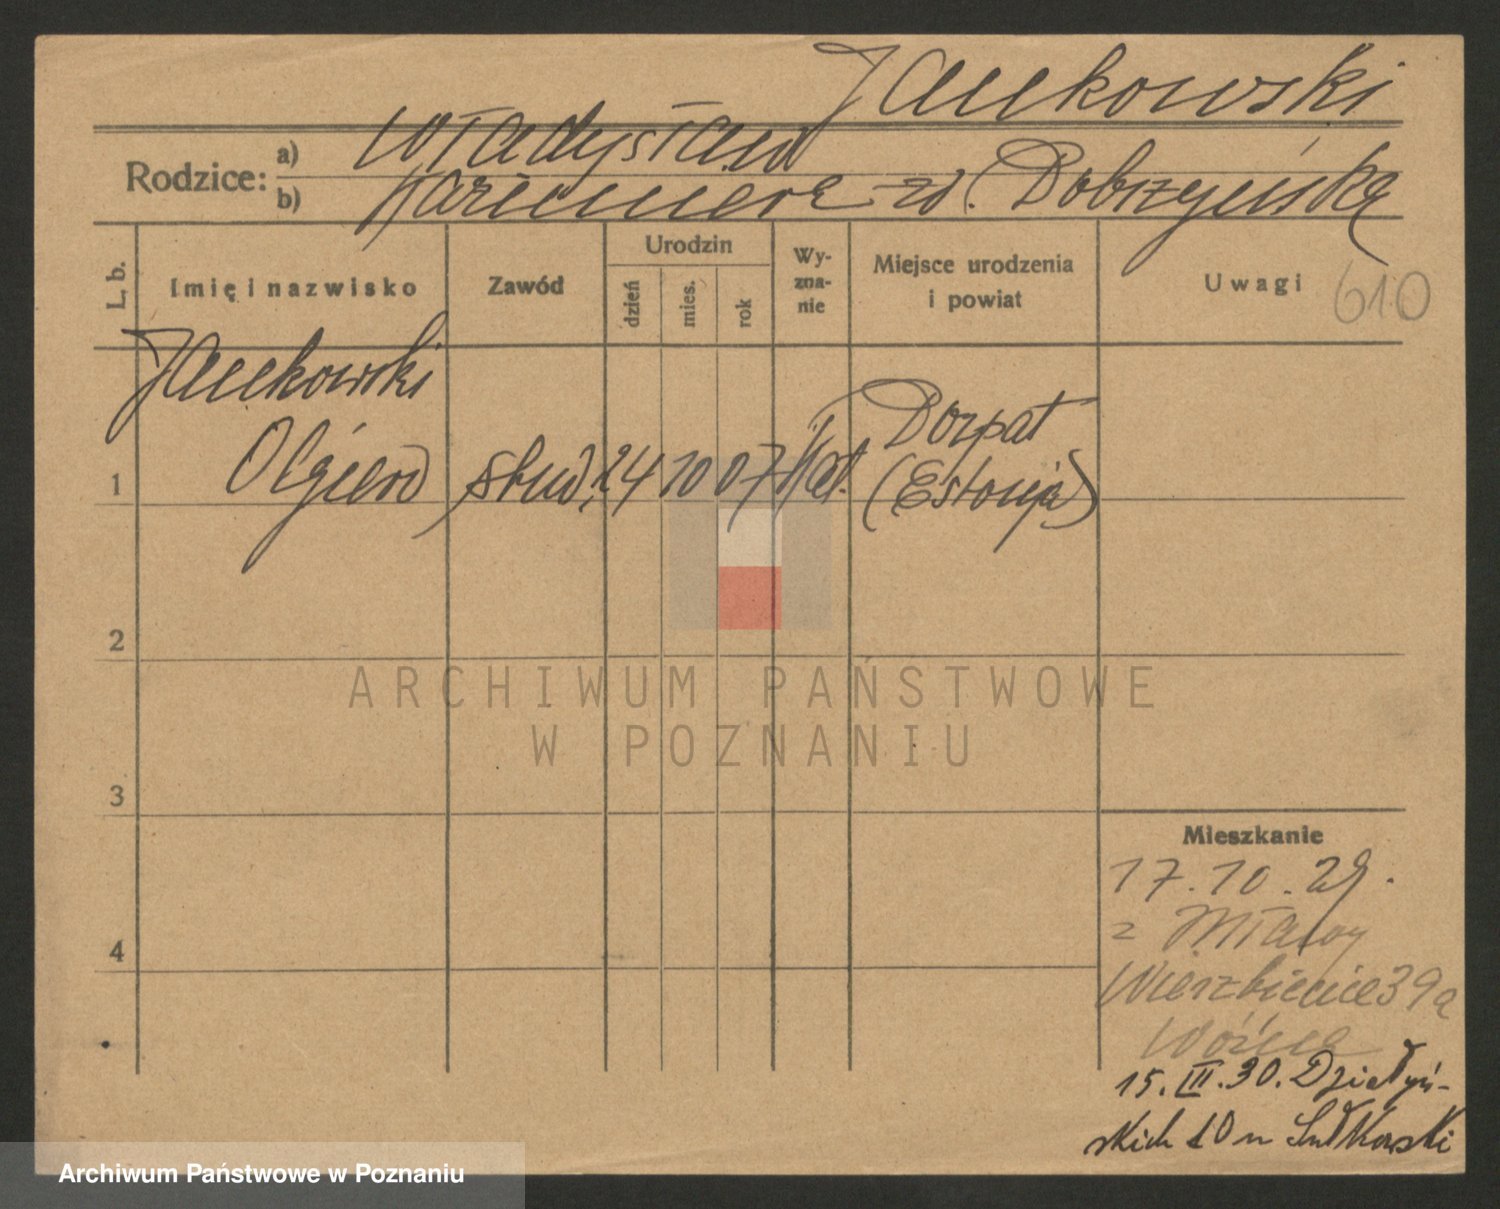 Jankowski
Rodzice: a) Władysław
b) Kazimiera zd. Dobrzyńska
L. b. Imię i nazwisko Zawód Urodzin dzień mies. rok Wy-zna-nie Miejsce urodzenia i powiat Uwagi 610
Jankowski
1 Olgierd stud. 24 10 07 kat. Dorpat
(Estonja)
2
ARCHIWUM PAŃSTWOWE
W POZNANIU
3
Mieszkanie
17.10.29.
z Mławy
4
Wierzbięcice 39a
15.III.30. Działyń-
skich 10 u Sułkowski
Archiwum Państwowe w Poznaniu